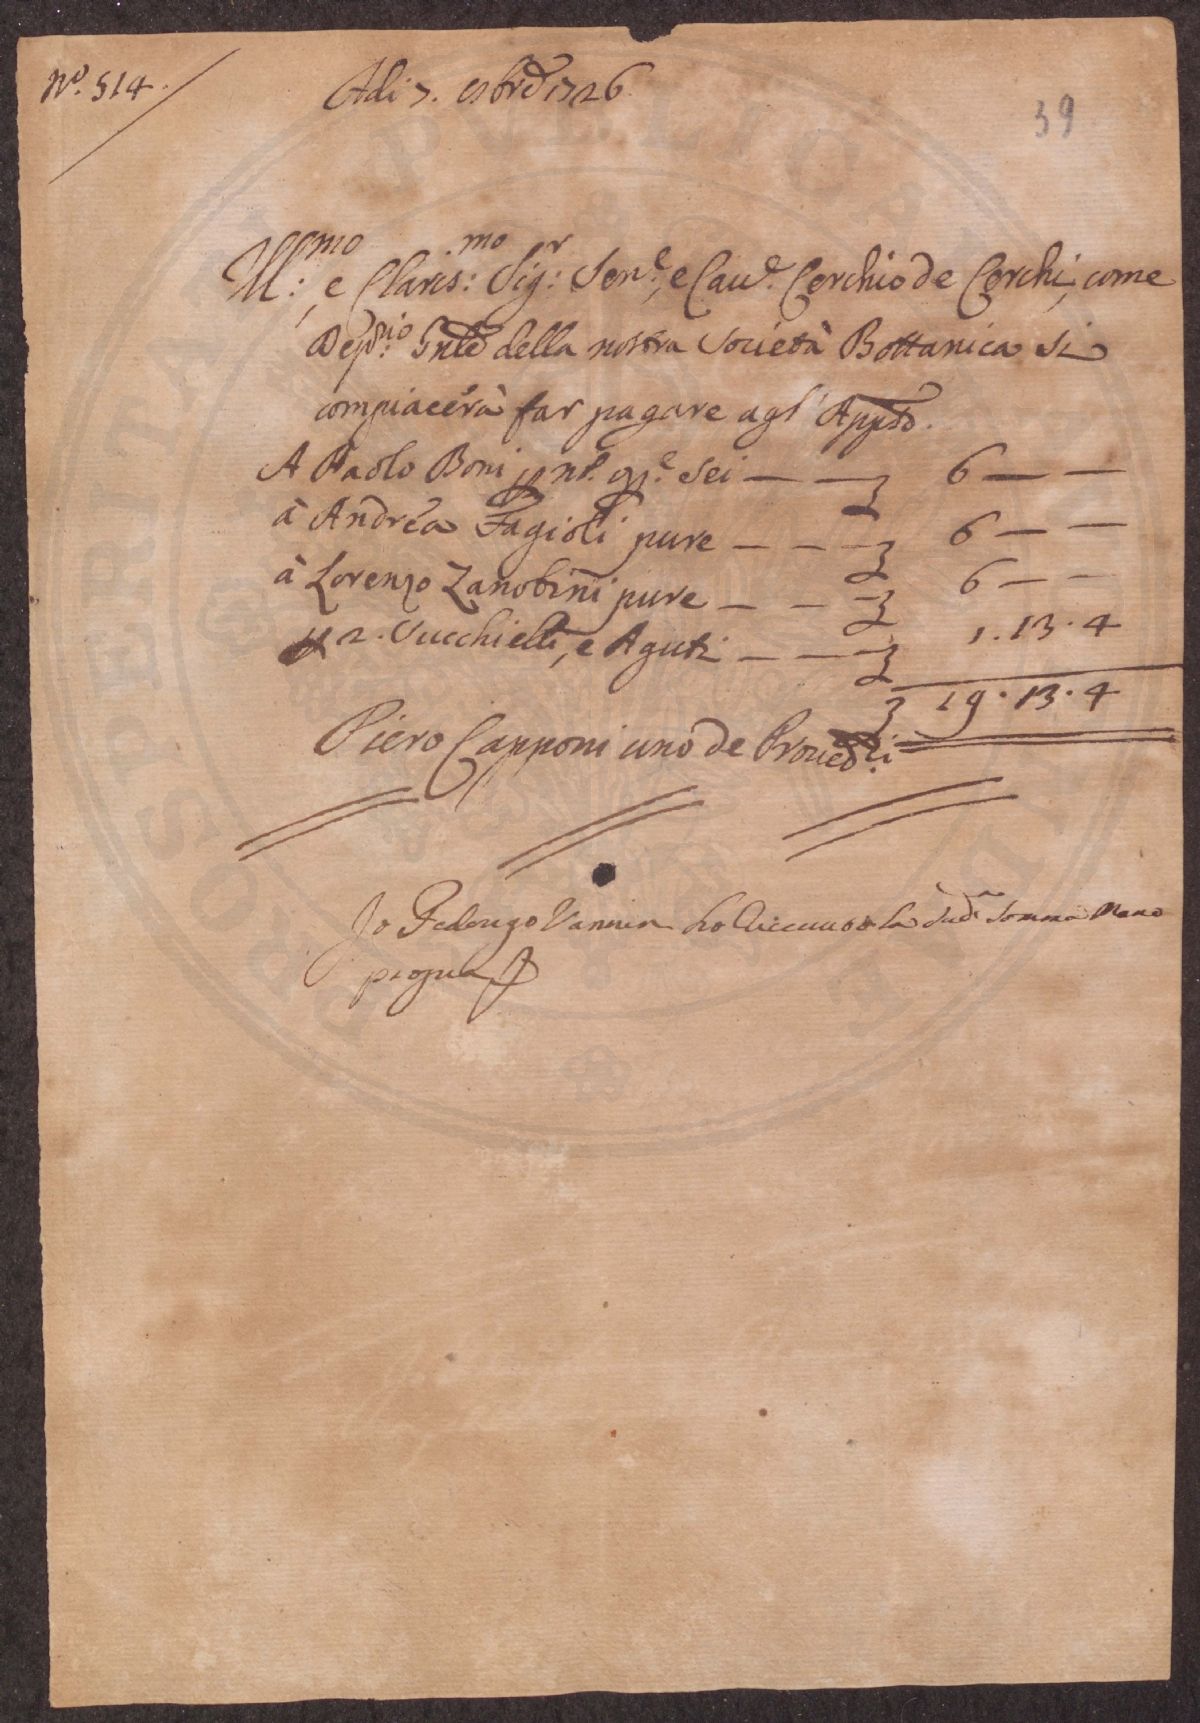 Nº. 514.
Adi 7. 9brē 1726
39
Ill:mo, e Clariss:mo Sig:r Sen:e, e Cau:e Cerchio de Cerchi, come
Dep:rio Gnlē della nostra Società Bottanica si
compiacerà far pagare agl' Apptō.
A Paolo Boni p nº. opē. sei — — 6 — —
à Andrea Fagioli pure — — — 6 — —
à Lorenzo Zanobini pure — — — 6 — —
p 2. Vucchielli, e Aguti — — — 1.13.4
19.13.4
Piero Capponi uno de Proued:ri
Io Federigo Vannini ho riceuuto la Sud:a Somma Mano
propria
PVBLICAE
PROSPERITATI